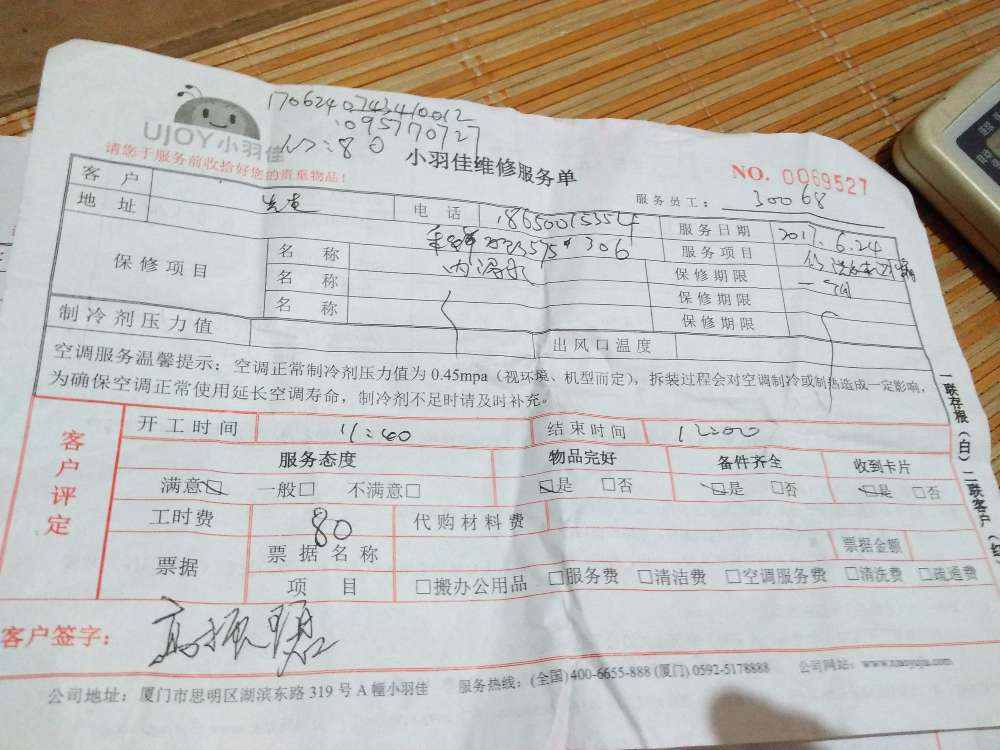 1706240742410012
UJOY小羽佳
请您于服务前收拾好您的贵重物品！
小羽佳维修服务单
NO. 0069527
服务员工： 30068
客 户 先生 电 话 18650015354 服务日期 2017.6.24
地 址 306 服务项目
保修项目 名 称 内漏水 保修期限 一个月
名 称 保修期限
名 称 保修期限
制冷剂压力值 出风口温度
空调服务温馨提示：空调正常制冷剂压力值为 0.45mpa（视环境、机型而定），拆装过程会对空调制冷或制热造成一定影响，
为确保空调正常使用延长空调寿命，制冷剂不足时请及时补充。
客户评定
开工时间 11:40 结束时间 12:00
服务态度 物品完好 备件齐全 收到卡片
满意□ 一般□ 不满意□ □是 □否 □是 □否 □是 □否
工时费 80 代购材料费
票据 票 据 名 称 票据金额
项 目 □搬办公用品 □服务费 □清洁费 □空调服务费 □清洗费 □疏通费
客户签字：
公司地址：厦门市思明区湖滨东路 319 号 A 幢小羽佳 服务热线：(全国) 400-6655-888 (厦门) 0592-5178888 公司网站：www.xiaoyujia.com
一联存根（白）二联客户（红